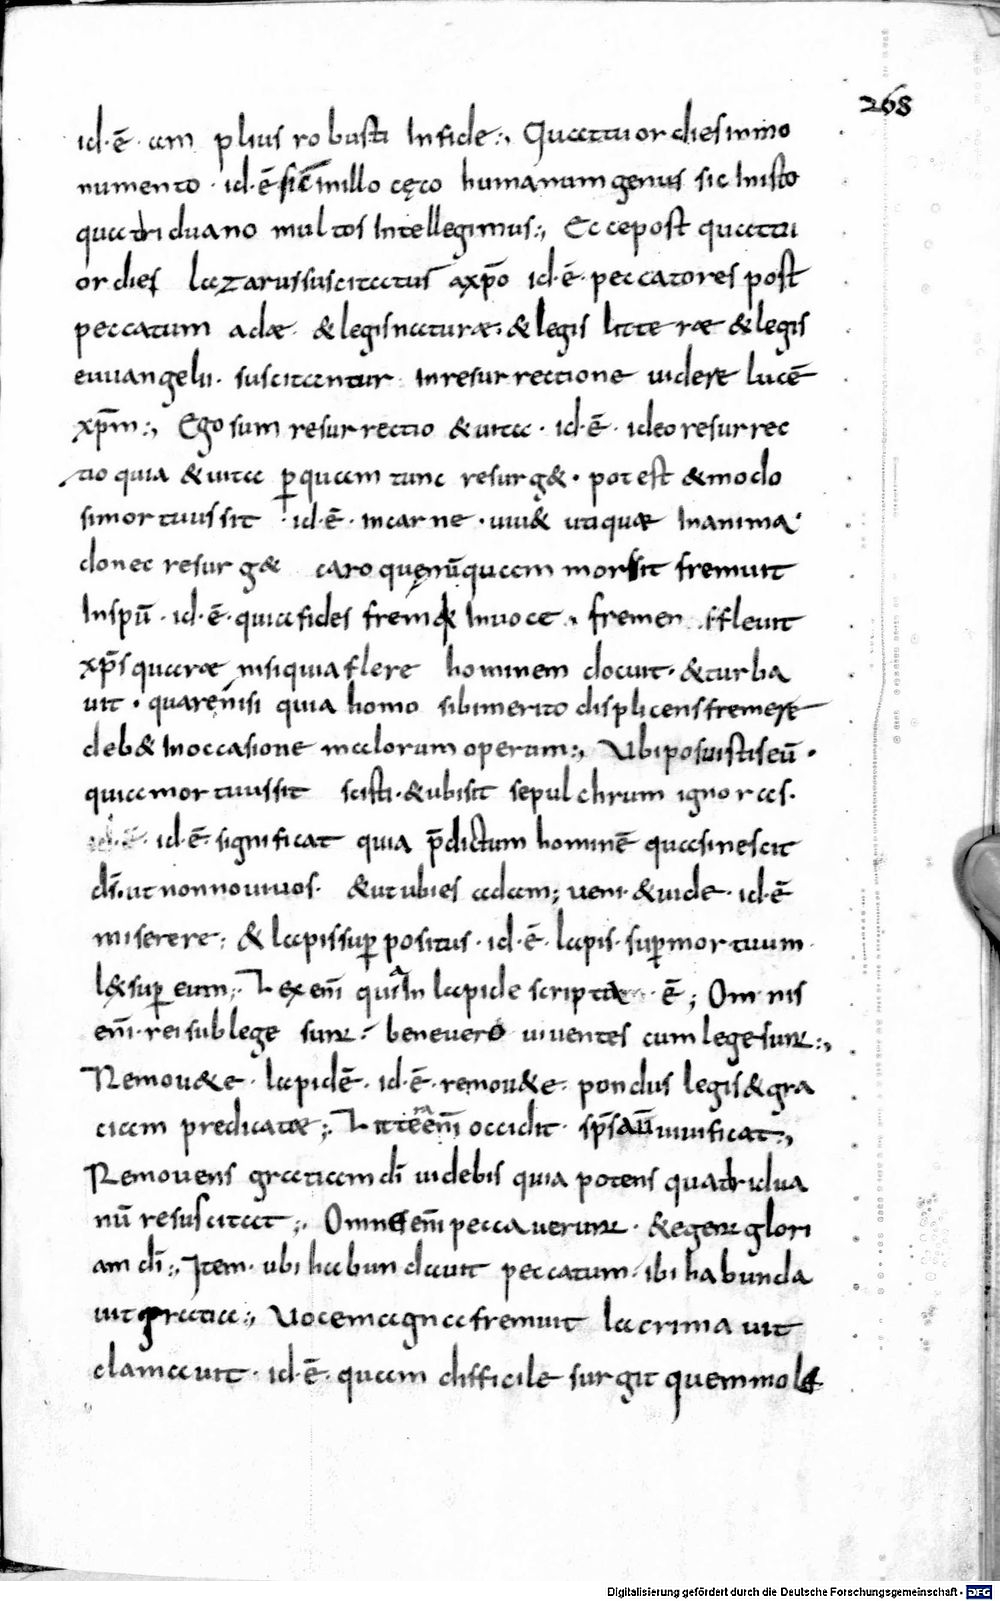 268
id·ē· am plius robusti Infide:, Quattuor dies inmo
numento · id·ē sic̄ inillo cęco humanum genus sic Inisto
quatriduano multos Intellegimus:, Ecce post quattu
or dies lazarus suscitatus axp̄o id·ē· peccatores post
peccatum adæ · & legis naturæ· & legis litteræ & legis
euuangelii · suscitantur Inresurrectione uidere lucē
xp̄m:, Ego sum resurrectio & uita · id·ē · ideo resurrec
tio quia & uita p̱ quam tunc resurg& · potest & modo
simortuus sit · id·ē · incarne · uiu& utiquæ Inanima·
donec resurg& caro quęnū quam morsit fremuit
Inspū · id·ē· quia fides frem& Inuoce · fremen fleuit
xp̄s quaræ nisi quia flere hominem docuit · & turba
uit · quare nisi quia homo sibimerito displicens fremere
deb& Inoccasione malorum operum:, Vbi posuistis eū ·
quia mortuus sit scisti · & ubi sit sepulchrum ignoras·
id·ē· significat quia p̄dictum hominē quasi nescit
dī· ut nonnouiuos· & ut ubi es adam; ueni · & uide · id·ē
miserere; & lapis sup̱positus · id·ē· lapis · sup̱mortuum
l& sup̱ eum;, Lex enī quia In lapide scripta ē; Omnis
enī· rei sub lege sunt · bene uero uiuentes cum lege sunt:,
Remou&e · lapidē · id·ē · remou&e · pondus legis & gra
ciam predicatæ;, Littera enī occidit · sp̄s aū uiuificat:,
Remouens gratiam dī uidebis quia potens quatridua
nū resuscitat;, Omnes enī peccauerunt · & egent glori
am dī:, Item · ubi habundauit peccatum · ibi habunda
uit gratia:, Uoce magna fremuit lacrimauit
clamauit · id·ē · quam difficile surgit quem mole
Digitalisierung gefördert durch die Deutsche Forschungsgemeinschaft - DFG